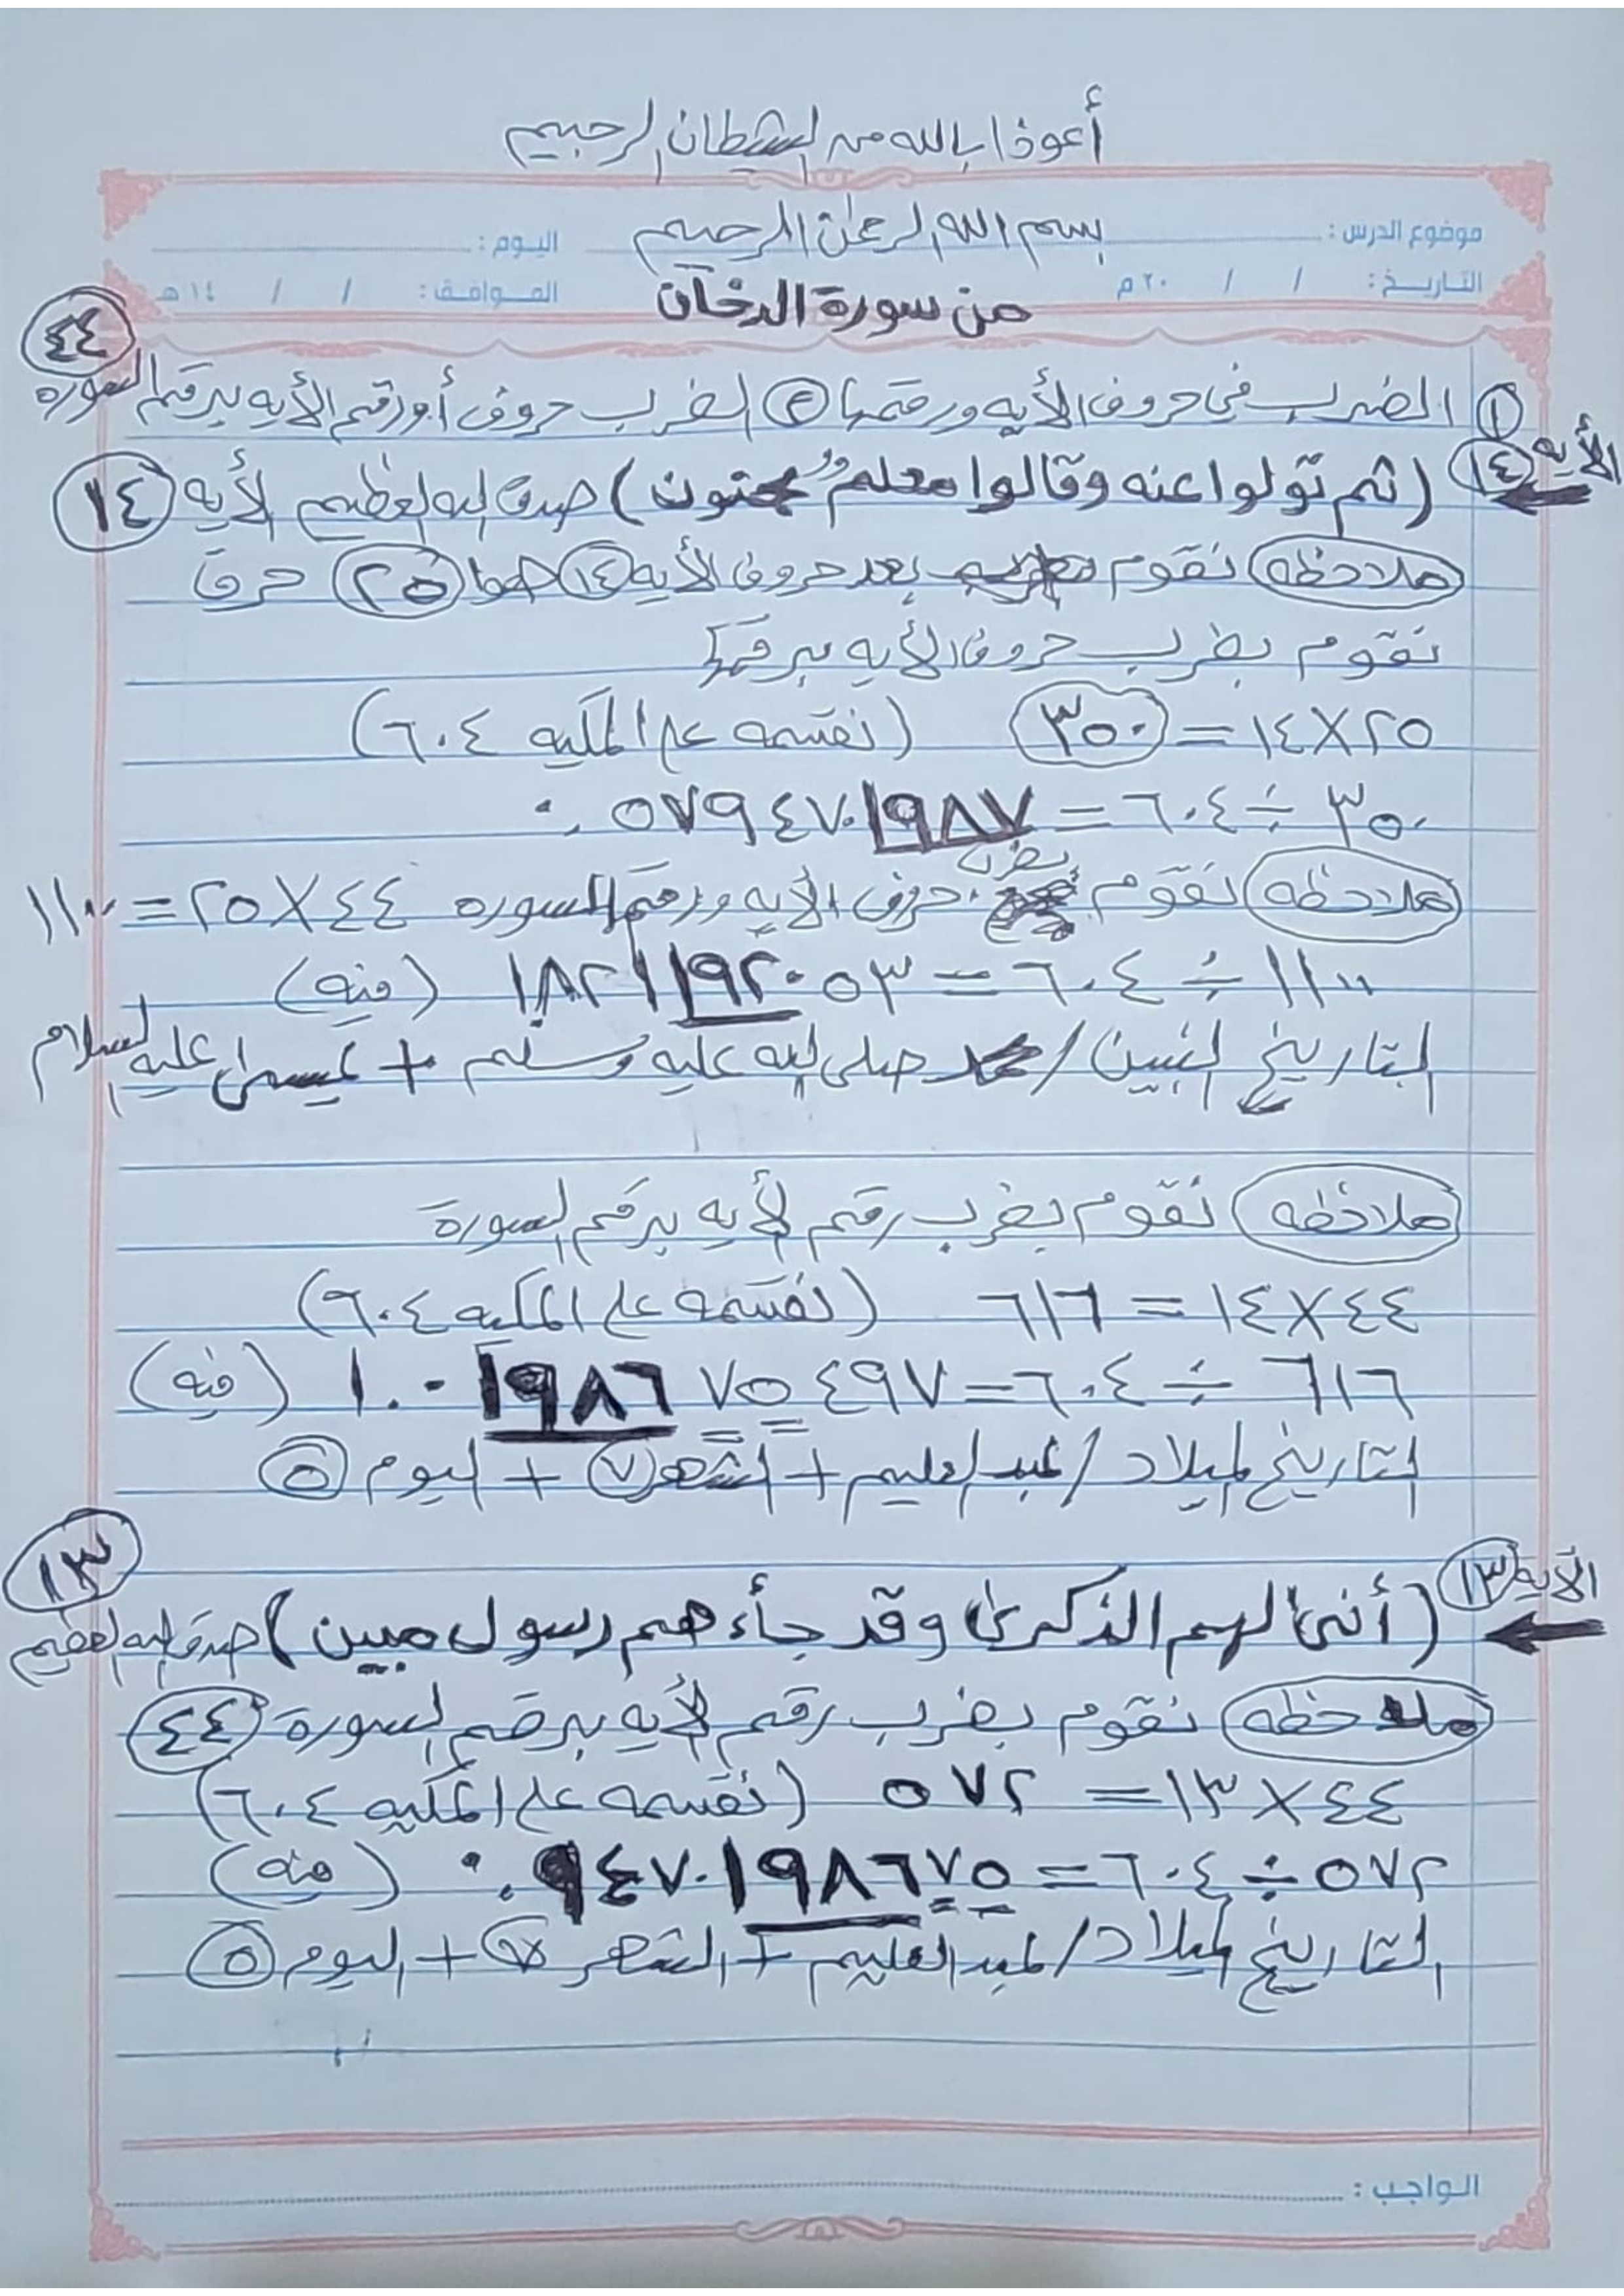 أعوذا بالله من الشيطان الرجيم
موضوع الدرس : بسم الله الرحمن الرحيم اليوم :
التاريخ : / / ٢٠ م من سورة الدخان الموافق : / / ١٤ هـ
٤٤
١ الضرب في حروف الأيه ورقمها ٢ الضرب حروف أو رقم الأيه برقم السوره
الأيه ١٤ (ثم تولوا عنه وقالوا معلمٌ مجنون) صدق الله العظيم الأيه ١٤
ملاحظه نقوم بعد حروف الأيه ١٤ ٢٥ حرف
نقوم بضرب حروف الأيه برقمها
٢٥ × ١٤ = ٣٥٠ (نقسمه على المكيه ٦٠٤)
٣٥٠ ÷ ٦٠٤ = ٠.٥٧٩٤٧٠١٩٨٧
ملاحظه نقوم بضرب حروف الأيه ورقم السوره ٤٤ × ٢٥ = ١١٠٠
١١٠٠ ÷ ٦٠٤ = ١.٨٢١١٩٢٠٥٣ (فيه)
التاريخ / محمد صلى الله عليه وسلم + عيسى عليه السلام
ملاحظه نقوم بضرب رقم الأيه برقم السورة
٤٤ × ١٤ = ٦١٦ (نقسمه على المكيه ٦٠٤)
٦١٦ ÷ ٦٠٤ = ١.٠١٩٨٦٧٥٤٩٧ (فيه)
التاريخ الميلاد / عبد العليم + الشهر ٧ + اليوم ٥
١٣
الأيه ١٣ (أنىٰ لهم الذكرىٰ وقد جأءهم رسول مبين) صدق الله العظيم
ملاحظه نقوم بضرب رقم الأيه برقم السورة ٤٤
٤٤ × ١٣ = ٥٧٢ (نقسمه على المكيه ٦٠٤)
٥٧٢ ÷ ٦٠٤ = ٠.٩٤٧٠١٩٨٦٧٥ (فيه)
التاريخ الميلاد / عبد العليم + الشهر ٧ + اليوم ٥
الواجب :